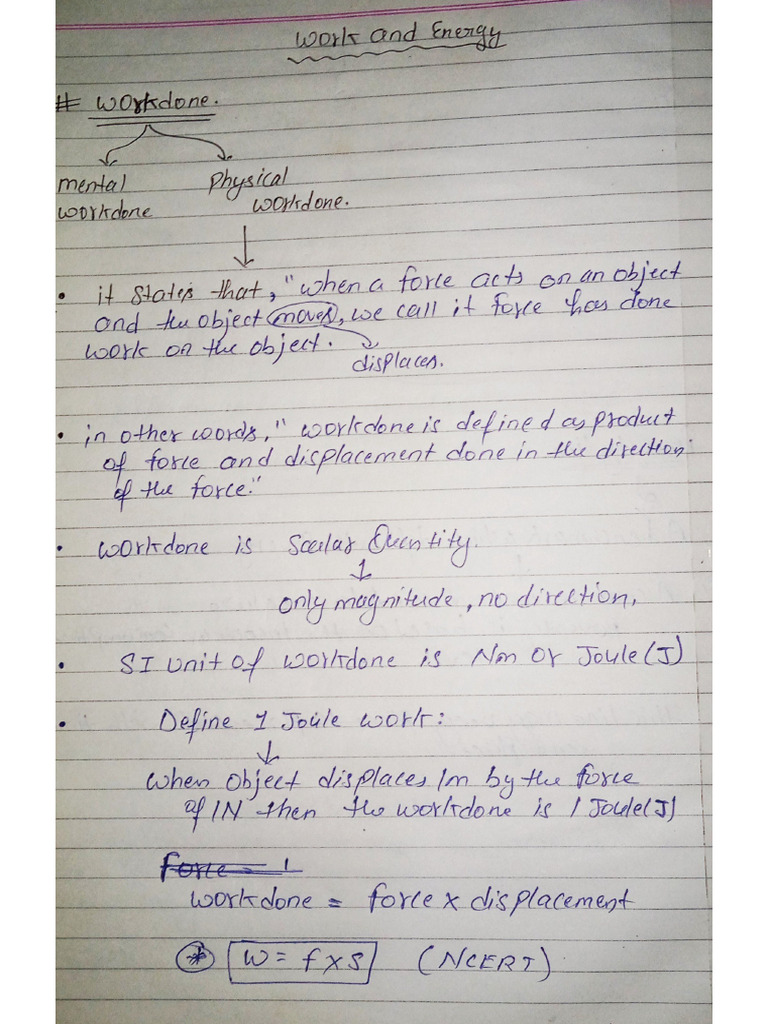 Work and Energy
# Workdone.
mental Physical
workdone workdone.
• it states that, "when a force acts on an object
and the object moves, we call it force has done
work on the object.
displaces.
• in other words, " workdone is defined as product
of force and displacement done in the direction
of the force."
• workdone is Scalar Quentity.
only magnitude, no direction,
• SI Unit of workdone is Nm or Joule (J)
• Define 1 Joule work:
when object displaces 1m by the force
of 1N then the workdone is 1 Joule (J)
force = 1
workdone = force x displacement
* W = f x s (NCERT)